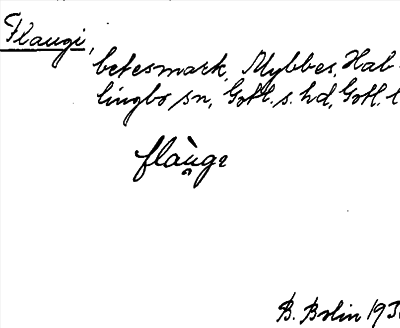 Flaugi,
betesmark, Mybbes, Hab-
lingbo sn, Gotl. s. hd, Gotl. l
flàu̯gɛ
B. Bolin 193